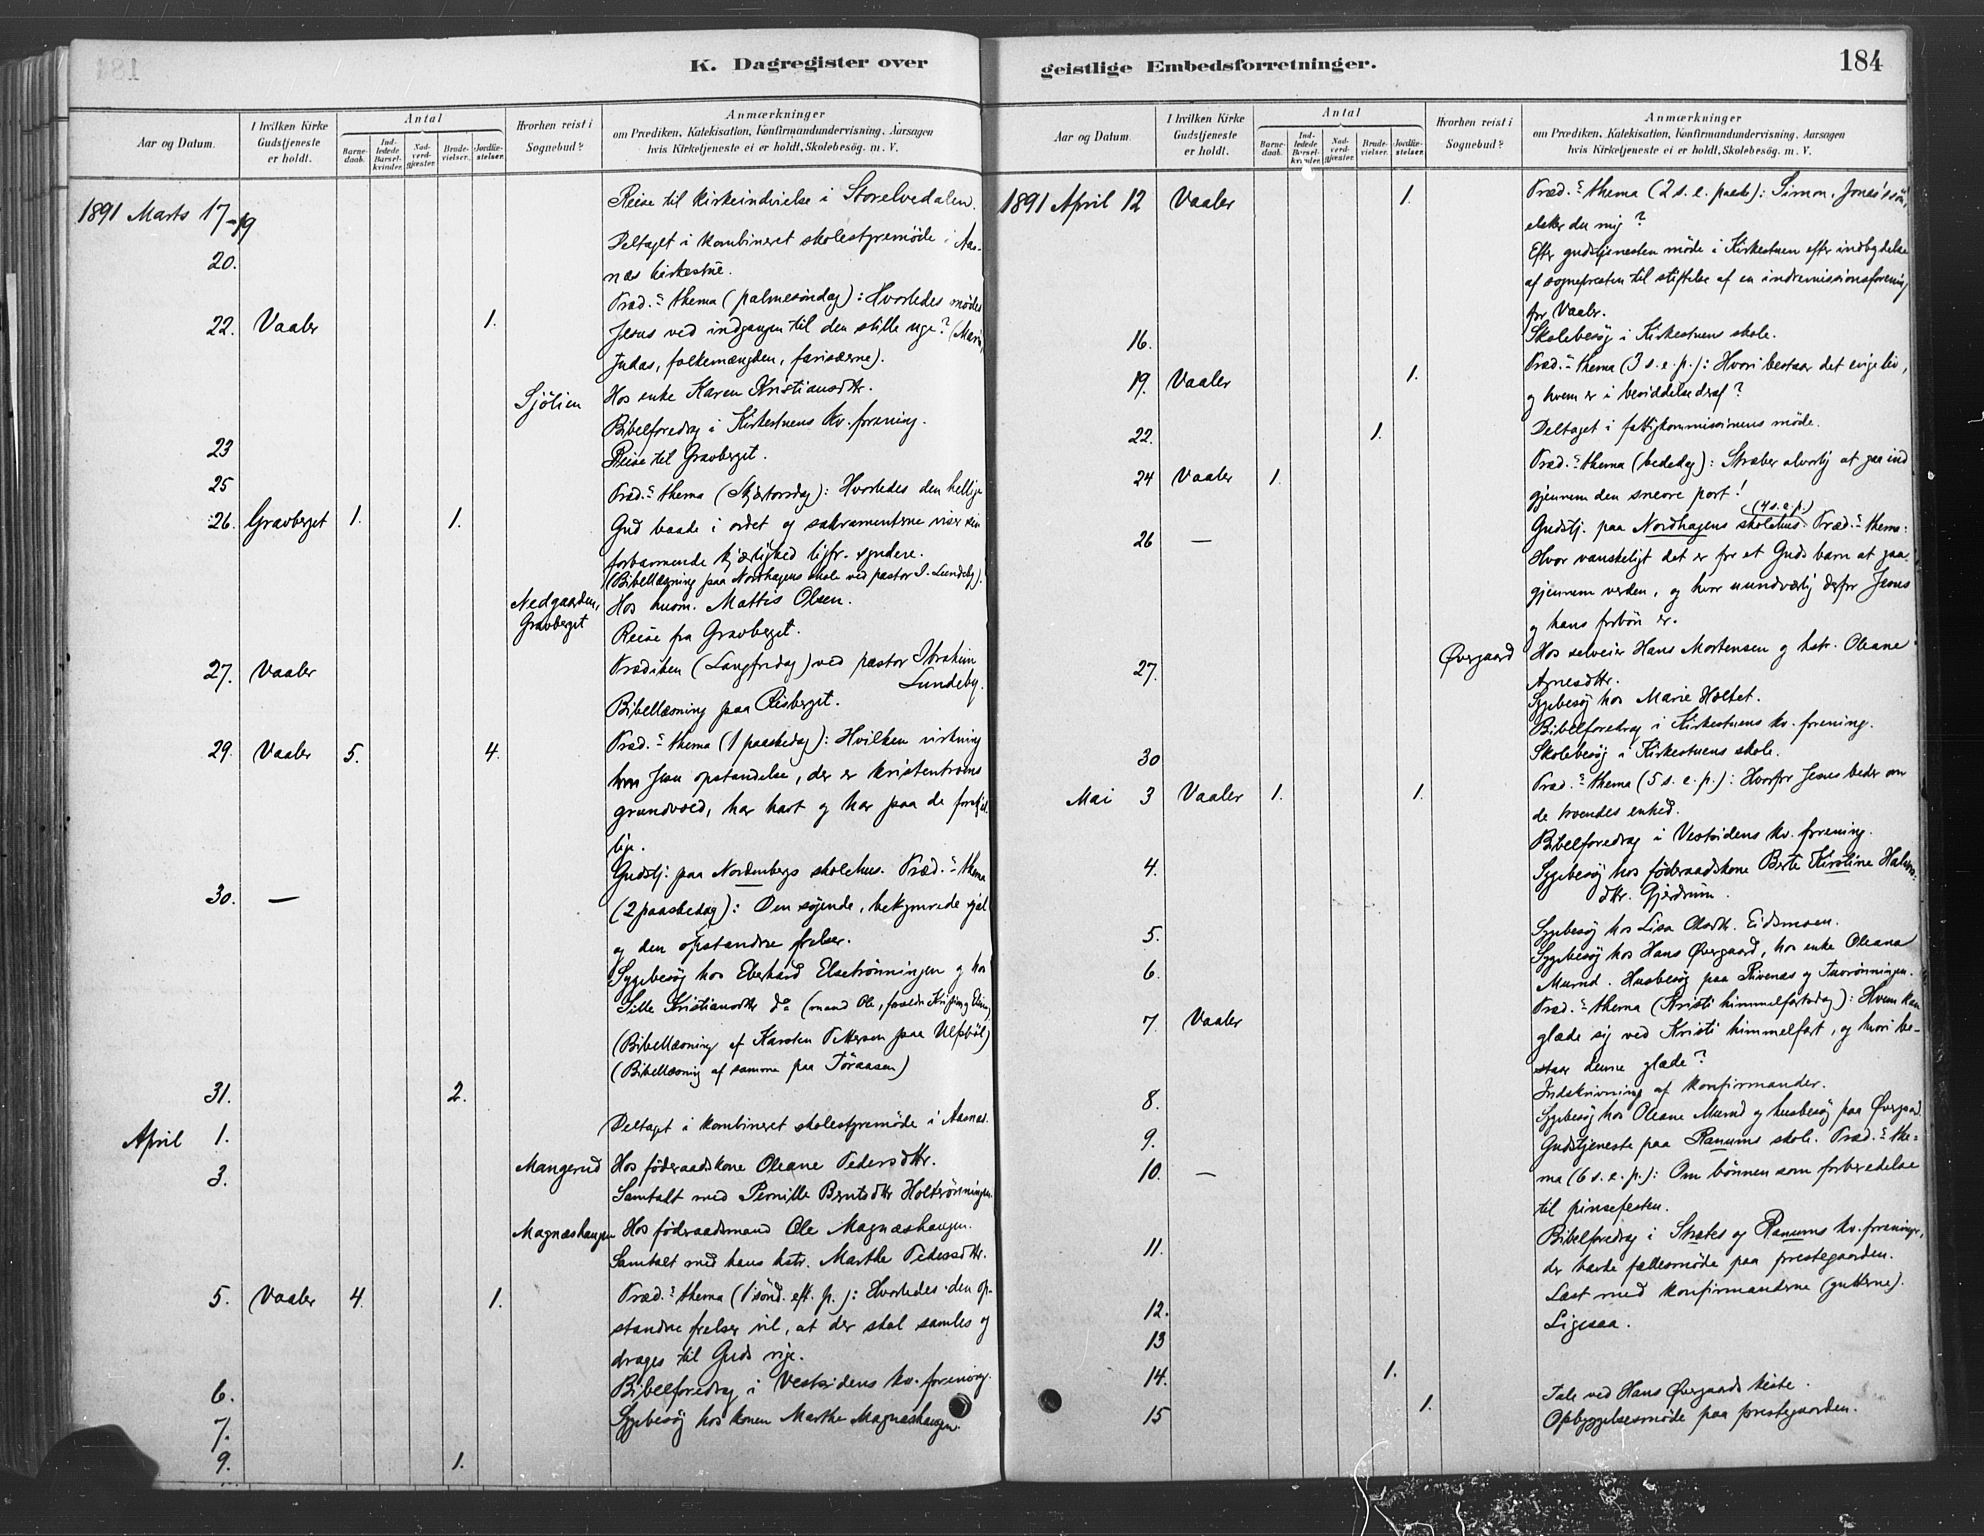 K. Dagregister over
Aar og Datum.
I hvilken Kirke Gudstjeneste er holdt.
Antal
Barnedaab.
Indledede Barselkvinder.
Nadverdgjæster.
Brudevielser.
Jordfæstelser.
Hvorhen reist i Sognebud?
Anmærkninger
om Prædiken, Katekisation, Konfirmandundervisning, Aarsagen
hvis Kirketjeneste ei er holdt, Skolebesög. m. V.
1891 Marts 17-19 Reise til kirkeindvielse i Storelvedalen.
20. Deltaget i kombineret skolestyremöde i Aas-
nas kirkestue.
22. Vaaler 1. Præd.s thema (palmesöndag): Hvorledes mödes
Jesus ved indgangen til den stille uge? (Maria,
Judas, folkemængden, farisæerne).
Sjölien Hos enke Karen Kristiansdtr.
23 Bibelforedrag i Kirkestuens kv. forening.
25 Reise til Gravberget.
26. Gravberget 1. 1. Præd.s thema (Skjærtorsdag): Hvorledes den hellige
Gud baade i ordet og sakramenterne viser sin
forbarmende kjærlighed ligfr. syndere.
(Bibellæsning paa Nordhagens skole ved pastor I. Lundeby).
Nedgaarden, Gravberget Hos husm. Mattis Olsen.
Reise fra Gravberget.
27. Vaaler Prædiken (Langfredag) ved pastor Ibrahim
Lundeby.
Bibellæsning paa Risberget.
29. Vaaler 5. 4. Præd.s thema (1 paaskedag): Hvilken virkning
Jesu opstandelse, der er kristentroens
grundvold, har havt og har paa de forskjel-
lige.
30. — Gudstj. paa Nordenbergs skolehus. Præd.s thema
(2 paaskedag): Den søgende, bekymrede sjæl
og den opstandne frelser.
Sygebesög hos Eberhard Elsetrönningen og hos
Sille Kristiansdtr do (mand Ole,
(Bibellæsning af Karsten Pettersen paa Ulfsböl)
(Bibellæsning af samme paa Töraasen)
31. 2.
April 1. Deltaget i kombineret skolestyremöde i Aasnes.
3. Mangerud Hos föderaadskone Oleane Pedersdtr.
Samtalt med Pernille Berntsdtr Holtrönningen.
Magnæshaugen Hos föderaadsmand Ole Magnæshaugen.
Samtalt med hans hstr. Marthe Pedersdtr.
5. Vaaler 4. 1. Præd.s thema (1 sönd. eft. p.): Hvorledes den op-
standne frelser vil, at der skal samles og
drages til Guds rige.
6. Bibelforedrag i Vestsidens kv. forening.
7. Sygebesög hos konen Marthe Magnæshaugen.
9. 1.
geistlige Embedsforretninger.
184
Aar og Datum.
I hvilken Kirke Gudstjeneste er holdt.
Antal
Barnedaab.
Indledede Barselkvinder.
Nadverdgjæster.
Brudevielser.
Jordfæstelser.
Hvorhen reist i Sognebud?
Anmærkninger
om Prædiken, Katekisation, Konfirmandundervisning, Aarsagen
hvis Kirketjeneste ei er holdt, Skolebesög. m. V.
1891 April 12 Vaaler 1. Præd.s thema (2 s. e. paaske): Simon, Jonas's sön,
elsker du mig?
Efter gudstjenesten möde i Kirkestuen efter indbydelse
af sognepresten til stiftelse af en indremissionsforening
for Vaaler.
16. Skolebesög i Kirkestuens skole.
19. Vaaler 1. Præd.s thema (3 s. e. p.): Hvori bestaar det evige liv,
og hvem er i besiddelse deraf?
22. 1. Deltaget i fattigkommissionens möde.
24 Vaaler 1. Præd.s thema (bededag): Stræber alvorlig at gaa ind
gjennem den snevre port!
26 — Gudstj. paa Nordhagens skolehus. (4 s. e. p.) Præd.s thema:
Hvor vanskeligt det er for et Guds barn at gaa
gjennem verden, og hvor uundværlig derfor Jesus
og hans forbön er.
27. Øvergaard Hos selveier Hans Mortensen og hstr. Oleane
Arnesdtr.
Sygebesög hos Marie Holtet.
Bibelforedrag i Kirkestuens kv. forening.
30 Skolebesög i Kirkestuens skole.
Mai 3 Vaaler 1. 1. Præd.s thema (5 s. e. p.): Hvorfor Jesus beder om
de troendes enhed.
Bibelforedrag i Vestsidens kv. forening.
4. Sygebesög hos föderaadskone Berte Kirstine Halvors-
dtr. Gjerdrum.
5. Sygebesög hos Lisa Olsdtr. Eidsmoen.
6. Sygebesög hos Hans Øvergaard, hos enke Oleana
Murud. Husbesög paa Rivenæs og Tuorönningen.
7. Vaaler Præd.s thema (Kristi himmelfartsdag): Hvem kan
glæde sig ved Kristi himmelfart, og hvori be-
staar denne glæde?
8. Indskrivning af konfirmander.
9. Sygebesög hos Oleane Murud og husbesög paa Øvergaard.
10. — Gudstjeneste paa Ranums skole. Præd.s the-
ma (6 s. e. p.): Om bönnen som forberedelse
til pinsefesten.
11. Bibelforedrag i Skætes og Ranums kv. foreninger,
der havde fællesmöde paa prestegaarden.
12. Læst med konfirmanderne (gutterne).
13 Ligesaa.
14. 1.
15 1. Tale ved Hans Øvergaards kiste.
Opbyggelsesmöde paa prestegaarden.